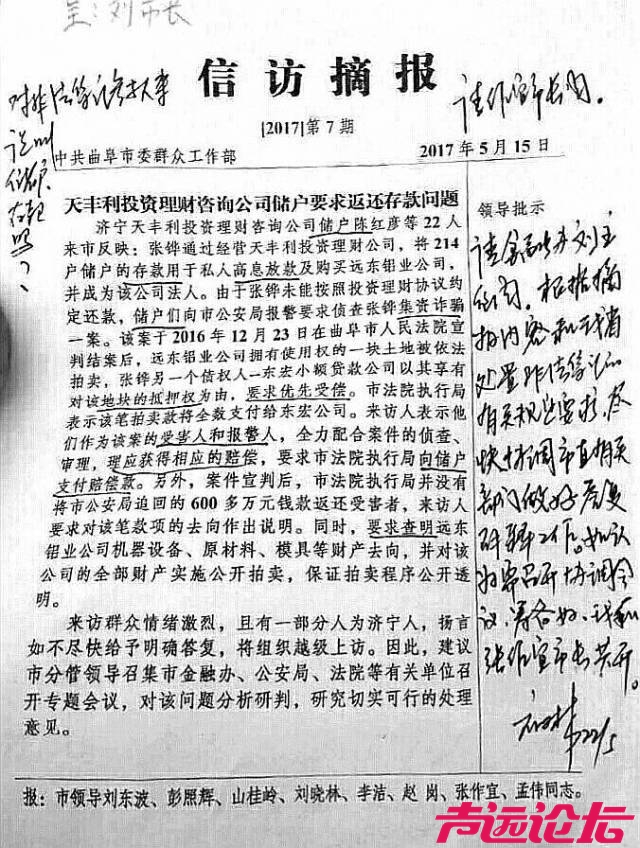 呈：刘市长
信访摘报
对非法集资
请作宜市长阅。
[2017]第7期
中共曲阜市委群众工作部
2017年5月15日
天丰利投资理财咨询公司储户要求返还存款问题
济宁天丰利投资理财咨询公司储户陈红彦等22人
来市反映：张铧通过经营天丰利投资理财公司，将214
户储户的存款用于私人高息放款及购买远东铝业公司，
并成为该公司法人。由于张铧未能按照投资理财协议约
定还款，储户们向市公安局报警要求侦查张铧集资诈骗
一案。该案于2016年12月23日在曲阜市人民法院宣
判结案后，远东铝业公司拥有使用权的一块土地被依法
拍卖，张铧另一个债权人—东宏小额贷款公司以其享有
对该地块的抵押权为由，要求优先受偿。市法院执行局
表示该笔拍卖款将全数支付给东宏公司。来访人表示他
们作为该案的受害人和报警人，全力配合案件的侦查、
审理，理应获得相应的赔偿，要求市法院执行局向储户
支付赔偿款。另外，案件宣判后，市法院执行局并没有
将市公安局追回的600多万元钱款返还受害者，来访人
要求对该笔款项的去向作出说明。同时，要求查明远东
铝业公司机器设备、原材料、模具等财产去向，并对该
公司的全部财产实施公开拍卖，保证拍卖程序公开透
明。
来访群众情绪激烈，且有一部分人为济宁人，扬言
如不尽快给予明确答复，将组织越级上访。因此，建议
市分管领导召集市金融办、公安局、法院等有关单位召
开专题会议，对该问题分析研判，研究切实可行的处理
意见。
领导批示
请金融办刘主
任阅。根据摘
报内容和我省
处置非法集资的
有关规定要求，尽
快协调市直有关
部门做好
研判工作。如认
为需召开协调会
议，筹备好，我和
张作宜市长共开。
22/5
报：市领导刘东波、彭照辉、山桂岭、刘晓林、李洁、赵岗、张作宜、孟伟同志。
声远论坛